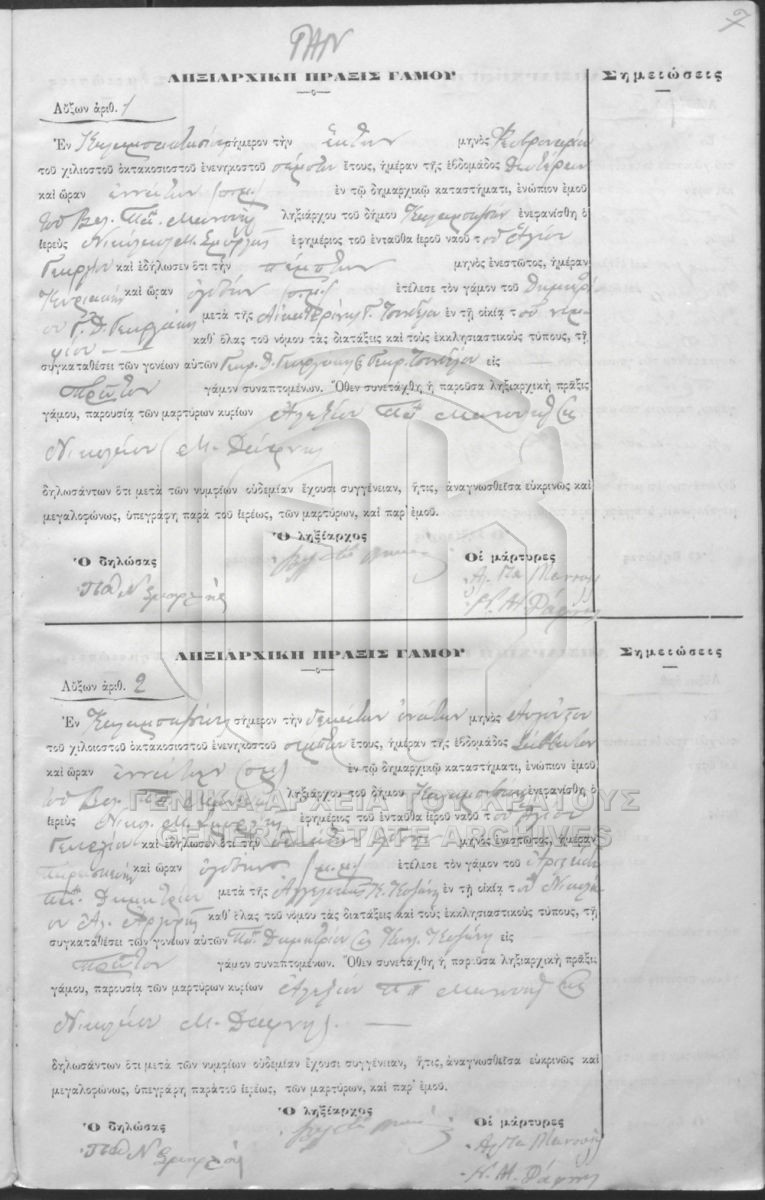 ΓΑΝ
2
ΛΗΞΙΑΡΧΙΚΗ ΠΡΑΞΙΣ ΓΑΜΟΥ
Σημειώσεις
Αὔξων ἀριθ. 1
Ἐν σήμερον τὴν ἕκτην μηνὸς Φεβρουαρίου
τοῦ χιλιοστοῦ ὀκτακοσιοστοῦ ἐνενηκοστοῦ πέμπτου ἔτους, ἡμέραν τῆς ἑβδομάδος Δευτέραν
καὶ ὥραν ἐννάτην (π.μ.) ἐν τῷ δημαρχικῷ καταστήματι, ἐνώπιον ἐμοῦ
τοῦ Βασ. Πα Μανουήλ ληξιάρχου τοῦ δήμου ἐνεφανίσθη ὁ
ἱερεὺς Νικόλαος Μ. ἐφημέριος τοῦ ἐνταῦθα ἱεροῦ ναοῦ τοῦ Ἁγίου
Γεωργίου καὶ ἐδήλωσεν ὅτι τὴν πέμπτην μηνὸς ἐνεστῶτος, ἡμέραν
Κυριακὴν καὶ ὥραν ὀγδόην (μ.μ.) ἐτέλεσε τὸν γάμον τοῦ Δημητρί
ου Γ. Δ. Γεωργάκη μετὰ τῆς Αἰκατερίνης Γ. ἐν τῇ οἰκίᾳ τοῦ νυμ
φίου — καθ' ὅλας τοῦ νόμου τὰς διατάξεις καὶ τοὺς ἐκκλησιαστικοὺς τύπους, τῇ
συγκαταθέσει τῶν γονέων αὐτῶν Γεωρ. Δ. Γεωργάκη & Γεωρ. εἰς
πρῶτον γάμον συναπτομένων. Ὅθεν συνετάχθη ἡ παροῦσα ληξιαρχικὴ πρᾶξις
γάμου, παρουσίᾳ τῶν μαρτύρων κυρίων Ἀλεξίου Πα Μανουήλ &
Νικολάου Μ. Δάφνη
δηλωσάντων ὅτι μετὰ τῶν νυμφίων οὐδεμίαν ἔχουσι συγγένειαν, ἥτις, ἀναγνωσθεῖσα εὐκρινῶς καὶ
μεγαλοφώνως, ὑπεγράφη παρὰ τοῦ ἱερέως, τῶν μαρτύρων, καὶ παρ' ἐμοῦ.
Ὁ ληξίαρχος
Ὁ δηλώσας
Οἱ μάρτυρες
Παπ Ν
Αλ. Πα Μανουήλ
Ν. Μ. Δάφνης
ΛΗΞΙΑΡΧΙΚΗ ΠΡΑΞΙΣ ΓΑΜΟΥ
Σημειώσεις
Αὔξων ἀριθ. 2
Ἐν σήμερον τὴν δεκάτην ἐνάτην μηνὸς Αὐγούστου
τοῦ χιλιοστοῦ ὀκτακοσιοστοῦ ἐνενηκοστοῦ πέμπτου ἔτους, ἡμέραν τῆς ἑβδομάδος Σάββατον
καὶ ὥραν ἐννάτην (πμ) ἐν τῷ δημαρχικῷ καταστήματι, ἐνώπιον ἐμοῦ
τοῦ Βασ. Πα Μανουήλ ληξιάρχου τοῦ δήμου ἐνεφανίσθη ὁ
ΓΕΝΙΚΑ ΑΡΧΕΙΑ ΤΟΥ ΚΡΑΤΟΥΣ
ἱερεὺς Νικ. Μ. ἐφημέριος τοῦ ἐνταῦθα ἱεροῦ ναοῦ τοῦ Ἁγίου
GENERAL STATE ARCHIVES
Γεωργίου καὶ ἐδήλωσεν ὅτι τὴν μηνὸς ἐνεστῶτος, ἡμέραν
Παρασκευὴν καὶ ὥραν ὀγδόην (μ.μ.) ἐτέλεσε τὸν γάμον τοῦ
Πα Δημητρίου μετὰ τῆς Κ. Κοζάνη ἐν τῇ οἰκίᾳ τοῦ Νικολά
ου Αγ. καθ' ὅλας τοῦ νόμου τὰς διατάξεις καὶ τοὺς ἐκκλησιαστικοὺς τύπους, τῇ
συγκαταθέσει τῶν γονέων αὐτῶν Πα Δημητρίου & Κοζάνη εἰς
πρῶτον γάμον συναπτομένων. Ὅθεν συνετάχθη ἡ παροῦσα ληξιαρχικὴ πρᾶξις
γάμου, παρουσίᾳ τῶν μαρτύρων κυρίων Ἀλεξίου Πα Μανουήλ &
Νικολάου Μ. Δάφνη. —
δηλωσάντων ὅτι μετὰ τῶν νυμφίων οὐδεμίαν ἔχουσι συγγένειαν, ἥτις, ἀναγνωσθεῖσα εὐκρινῶς καὶ
μεγαλοφώνως, ὑπεγράφη παρὰ τοῦ ἱερέως, τῶν μαρτύρων, καὶ παρ' ἐμοῦ.
Ὁ ληξίαρχος
Ὁ δηλώσας
Οἱ μάρτυρες
Παπ Ν
Αλ Πα Μανουήλ
Ν. Μ. Δάφνης